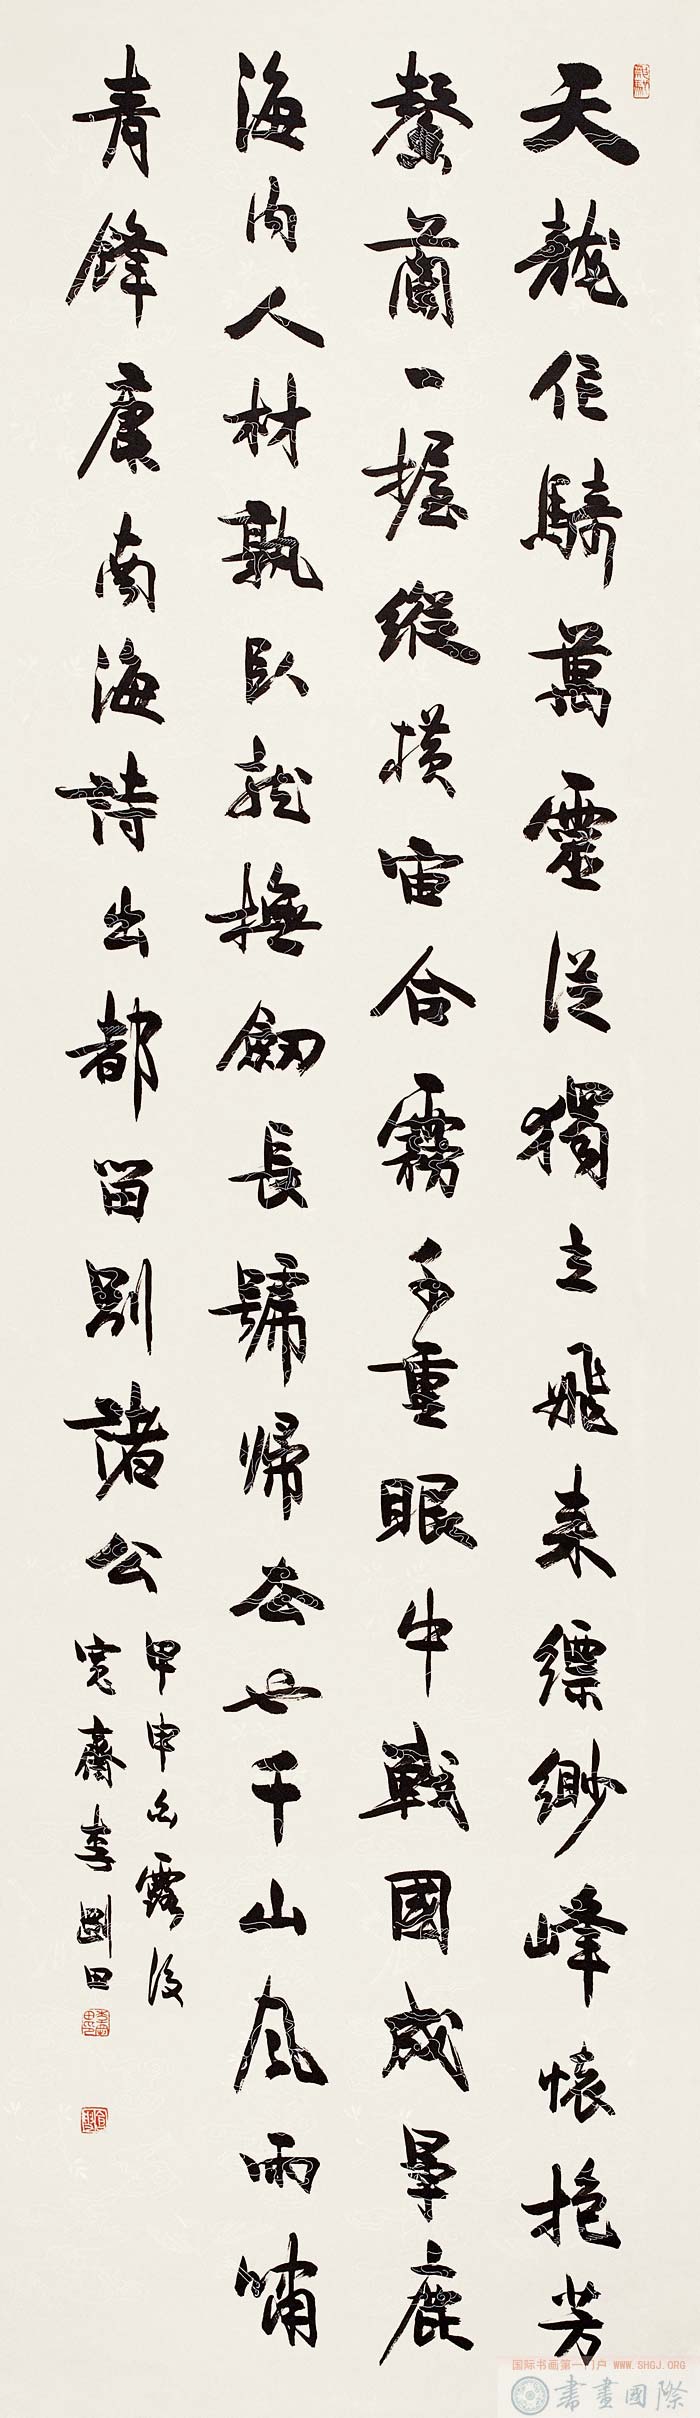 天龍作騎萬靈從獨立飛來縹緲峰懷抱芳
馨蘭一握縱橫宙合霧千重眼中戰國成爭鹿
海内人材孰臥龍撫劍長號歸去也千山風雨嘯
青鋒康南海詩出都留別諸公
甲申白露後
寬齋李剛田
国际书画第一门户 WWW.SHGJ.ORG
書畫國際